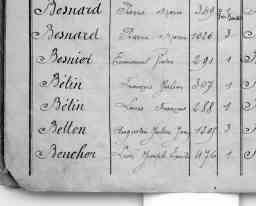 Besnard Pierre Marie 369
Besnard Pierre Marie 1026 3
Besnier Emmanuel 291 1
Bétin François Julien 307 1
Bétin Louis François 288 1
Betton Augustin Julien 1205 3
Beuchot Joseph 476 1